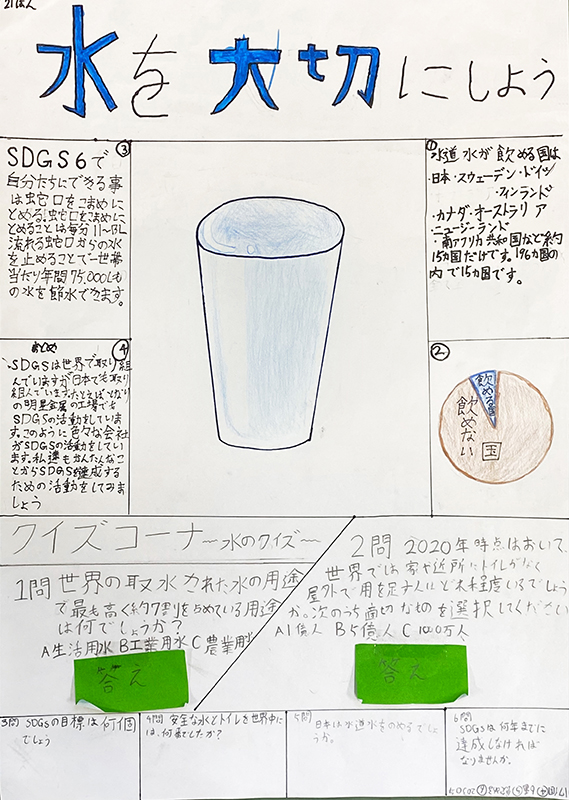 21ぱん
水を大切にしよう
①
水道水が飲める国は
・日本・スウェーデン・ドイツ
・フィンランド
・カナダ・オーストラリア
・ニュージーランド
・南アフリカ共和国など約
15カ国だけです。196カ国の
内で15カ国です。
②
飲める国
飲めない
国
③
SDGS6で
自分たちにできる事
は蛇口をこまめに
とめる。蛇口をこまめに
とめることは毎分11〜13L
流れる蛇口からの水
を止めることで一世帯
当たり年間75,000Lも
の水を節水できます。
④
まとめ
SDGSは世界で取り組
んでいますが日本でも取り
組んでいます。たとえばとなり
の明星金属の工場でも
SDGSの活動をしていま
す。このように色々な会社
がSDGSの活動をしてい
ます。私達もかんたんなこ
とからSDGSを達成する
ための活動をしてみま
しょう
クイズコーナー〜水のクイズ〜
1問 世界の取水された水の用途
で最も高く約7割をしめている用途
は何でしょうか?
A生活用水 B工業用水 C農業用水
答え
2問 2020年時点において、
世界では家や近所にトイレがなく
屋外で用を足す人はどれ程度いるでしょう
か。次のうち適切なものを選択してください
A1億人 B5億人 C1000万人
答え
3問 SDGsの目標は何個
でしょう
4問 安全な水とトイレを世界中に
は、何番でしたか?
5問 日本は水道水をのめるでしょ
うか。
6問
SDGSは何年までに
達成しなければ
なりませんか。